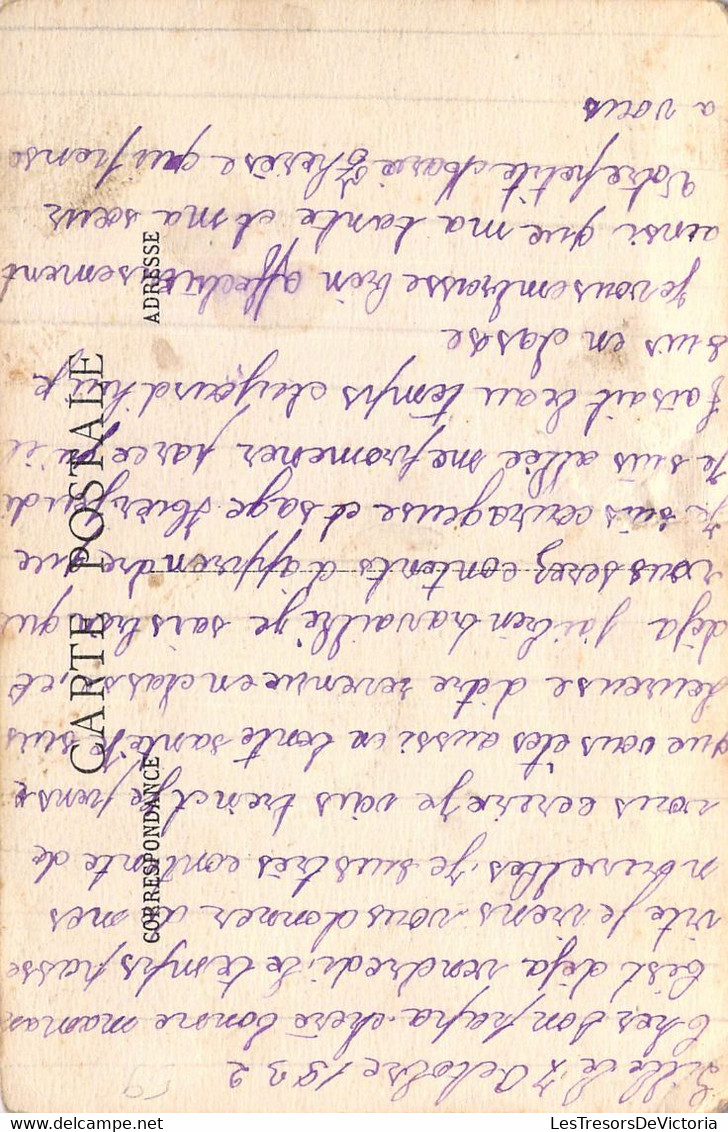 Lille le 7 Octobre 1932
Cher bon papa chère bonne maman
C'est déja vendredi. le temps passe
vite je viens vous donner de mes
nouvelles. Je suis très contente de
vous écrire je vais bien et je pense
que vous êtes aussi en bonte santé. Je suis
heureuse d'être revenue en class et
déja j'ai bien travaillé je sais bon que
vous serez contents d'apprendre que
je suis courageuse et sage. Hier jeudi
je suis allée me promener parce qu'il
faisait beau temps aujourd'hui je
suis en classe
je vous embrasse bien affectueusement
ainsi que ma tante et ma sœur
Votre petite Marie Thérèse qui pense
a vous
CARTE POSTALE
CORRESPONDANCE
ADRESSE
59
LesTresorsDeVictoria